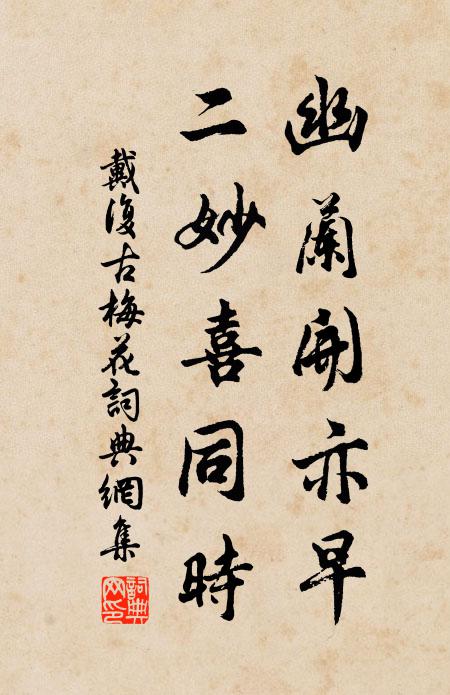 幽蘭開亦早
二妙喜同時
戴復古梅花詞典網集
詞典网印